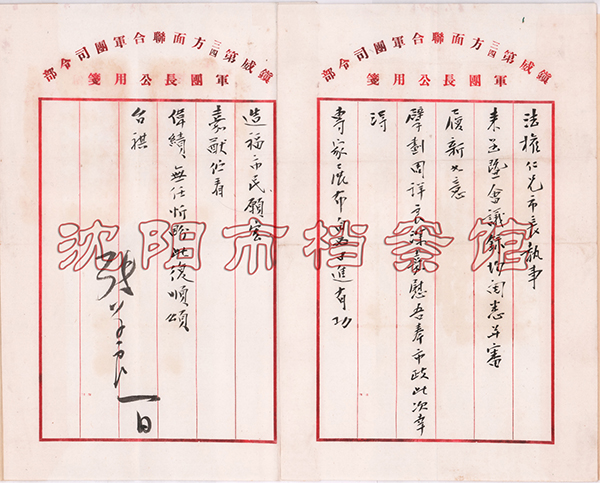 鎮威第三四方面聯合軍團司令部
軍團長公用箋
法權仁兄市長執事
來函暨會議錄均閱悉并審
履新意
擘劃周詳良深嘉慰吾奉市政此次幸
得
專家展布自必日進有功
鎮威第三四方面聯合軍團司令部
軍團長公用箋
造福市民願宏
嘉猷佇看
偉績無任忻盼此復順頌
台祺
張學良 一日
沈阳市档案馆